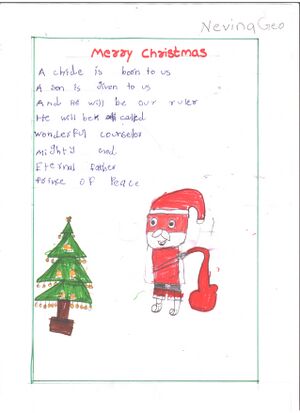 Neving Geo
Merry Christmas
A chide is born to us
A son is given to us
And He will be our ruler
He will be called
wonderful counselor
Mighty God
Eternal father
Prince of Peace